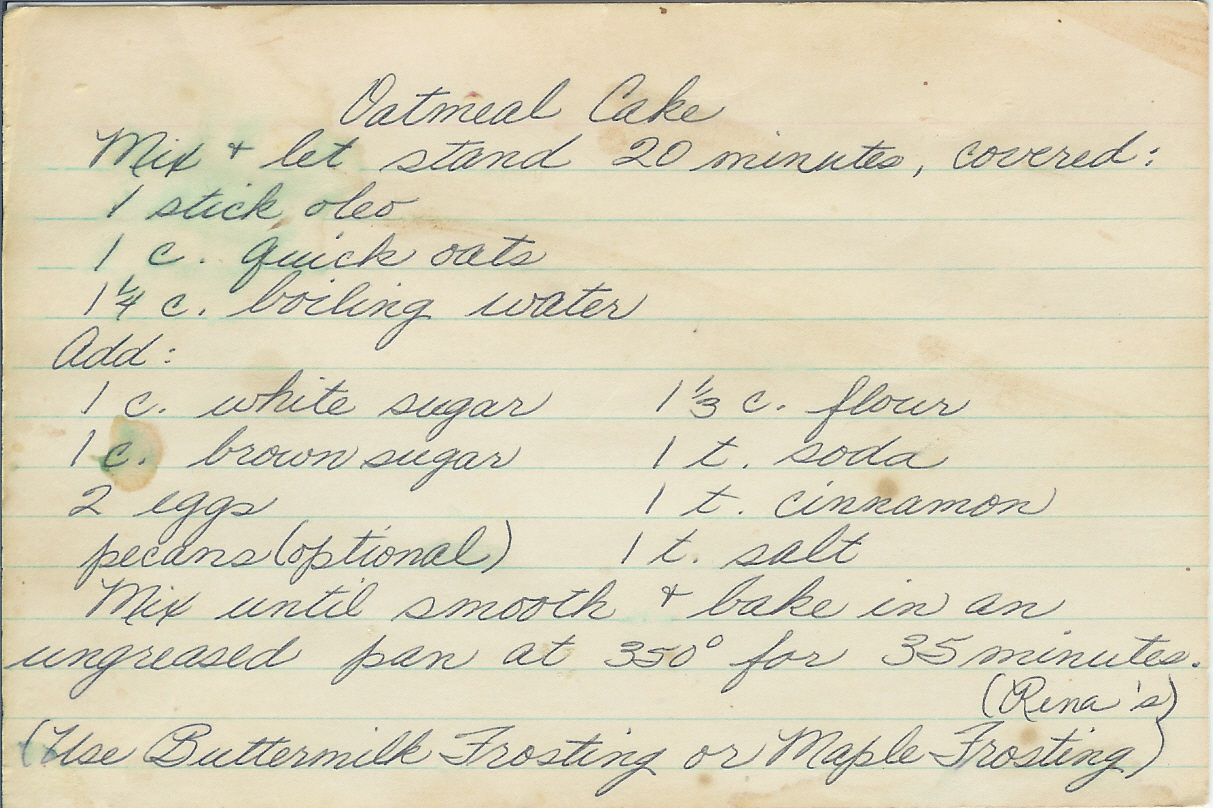 Oatmeal Cake
Mix + let stand 20 minutes, covered:
1 stick oleo
1 c. quick oats
1 1/4 c. boiling water
Add:
1 c. white sugar 1 1/3 c. flour
1 c. brown sugar 1 t. soda
2 eggs 1 t. cinnamon
pecans (optional) 1 t. salt
Mix until smooth + bake in an
ungreased pan at 350° for 35 minutes.
(Rena's)
(Use Buttermilk Frosting or Maple Frosting)